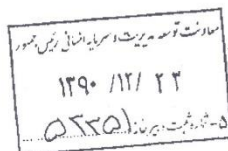 معاونت توسعه مدیریت و سرمایه انسانی رئیس جمهور
۱۳۹۰ /۱۲/ ۲۳
۵-شماره ثبت دبیرخانه